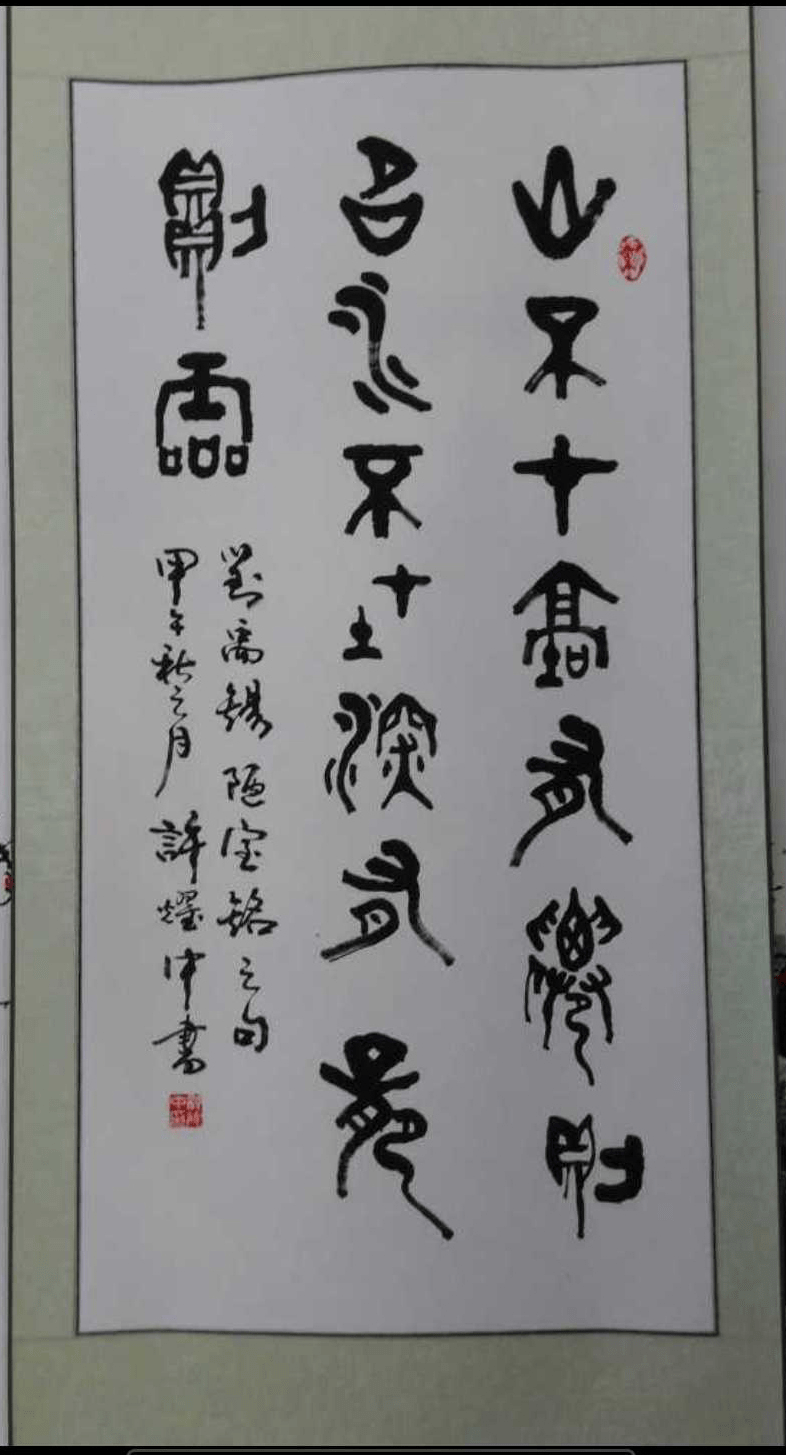 山不在高有僊則
名水不在深有龍
則靈
劉禹錫陋室銘之句
甲午秋之月 許燿中書